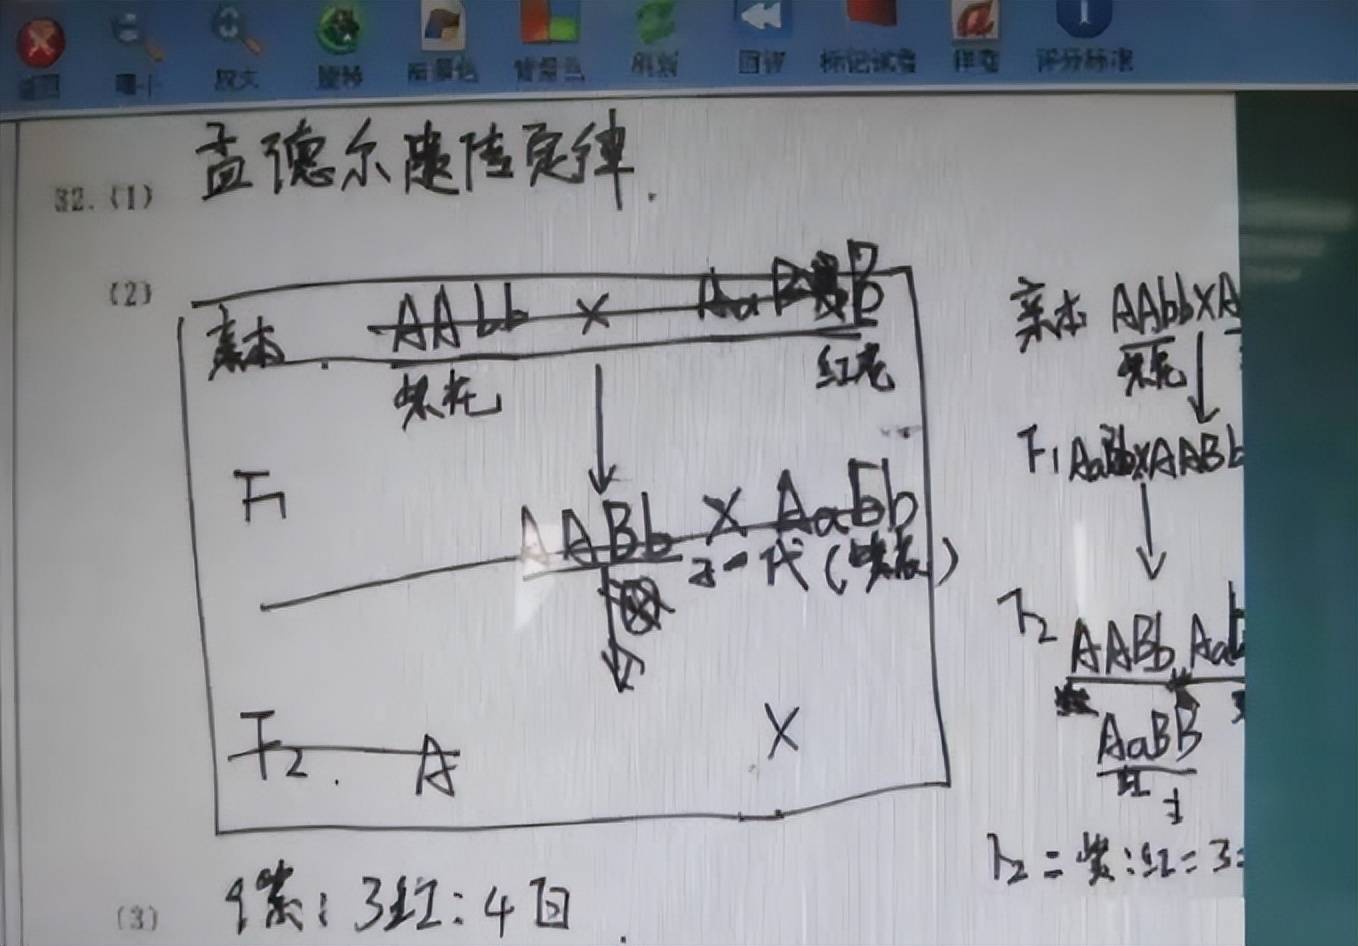 放大 旋转 前景色 背景色 刷新 回评 标记试卷 样卷 评分标准
32.(1) 孟德尔遗传定律.
(2)
亲本 AAbb × AaBB
紫花 红花
F1 AABb × Aabb
子一代(紫花)
F2. A X
亲本 AAbb×A
紫花
F1 AaBb×AABb
F2 AABb Aab
AaBB
红
F2=紫:红=3:
(3) 9紫:3红:4白.